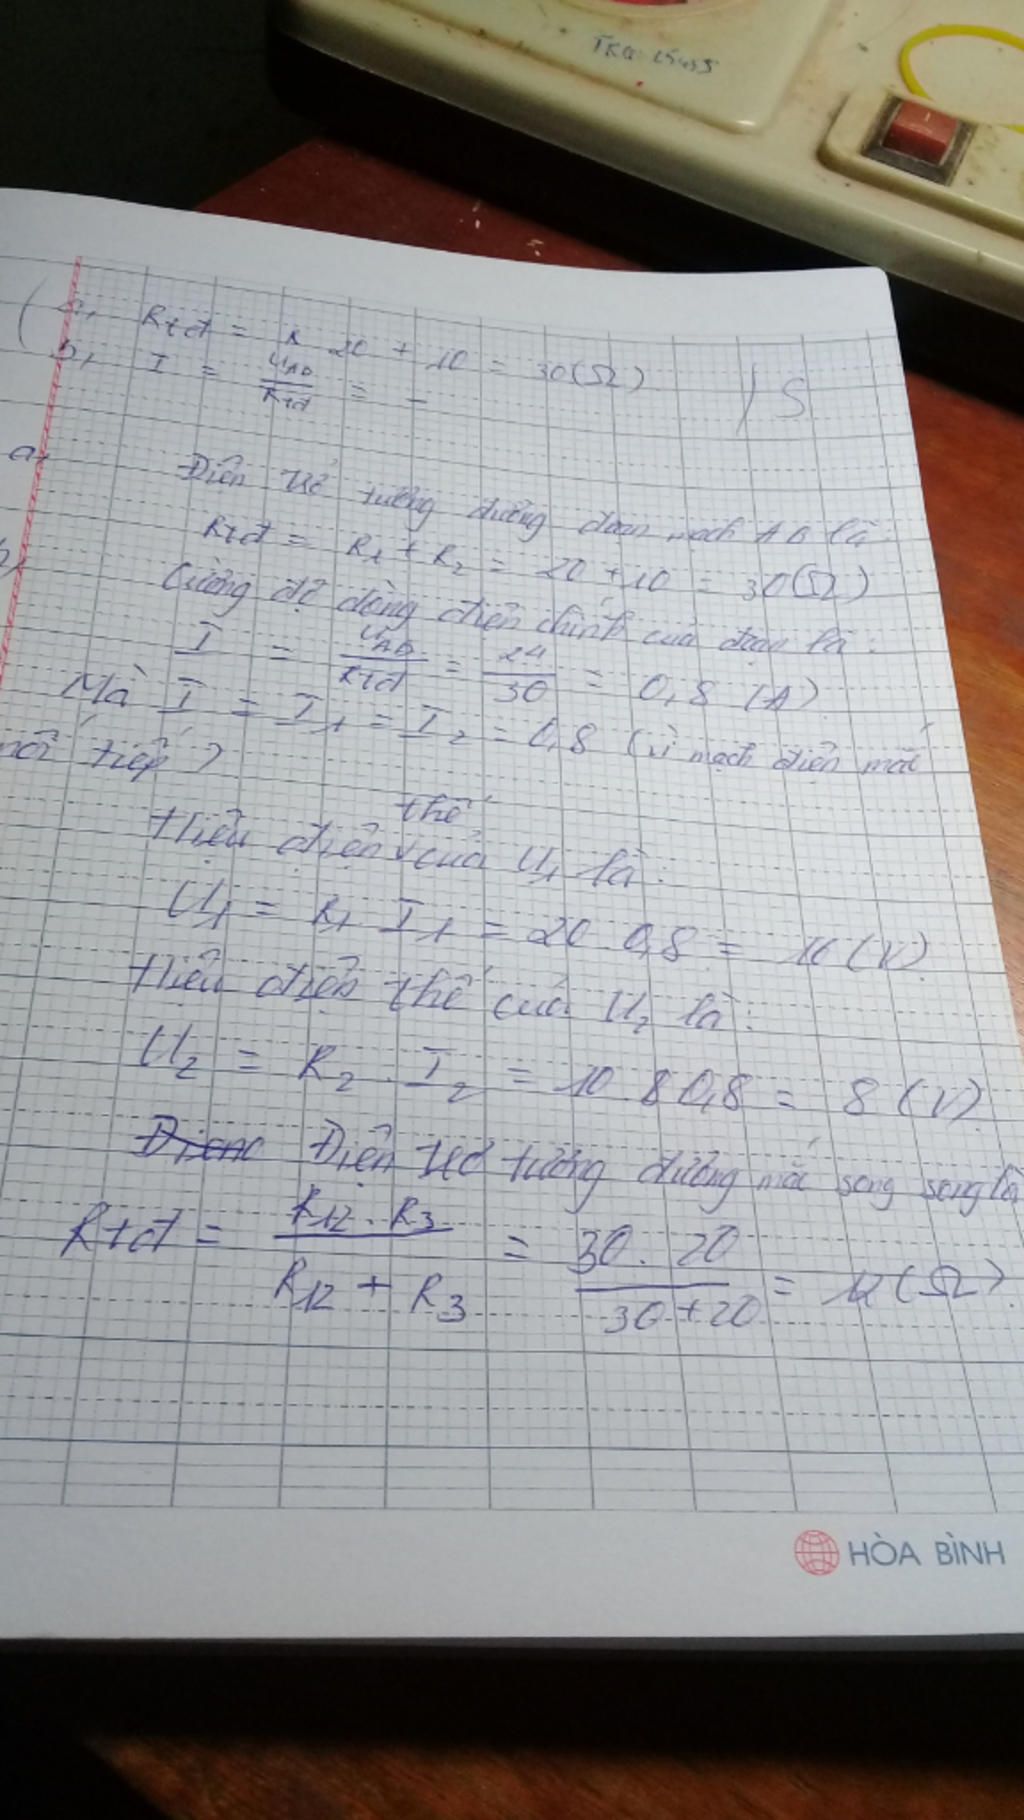 TKQ
a, Rtđ = R 20 + 10 = 30(Ω)
b, I = UAB / Rtđ = -
| S
a,
Điện trở tương đương đoạn mạch AB là:
Rtđ = R1 + R2 = 20 + 10 = 30(Ω)
b,
Cường độ dòng điện chính của đoạn là:
I = UAB / Rtđ = 24 / 30 = 0,8 (A)
Mà I = I1 = I2 = 0,8 (vì mạch điện mắc
nối tiếp)
Hiệu điện thế của U1 là:
U1 = R1 I1 = 20 0,8 = 16 (V)
Hiệu điện thế của U2 là:
U2 = R2 . I2 = 10 8 0,8 = 8 (V)
Điện trở tương đương mắc song song là
Rtđ = R12 . R3 / R12 + R3 = 30 . 20 / 30 + 20 = 12 (Ω)
HÒA BÌNH